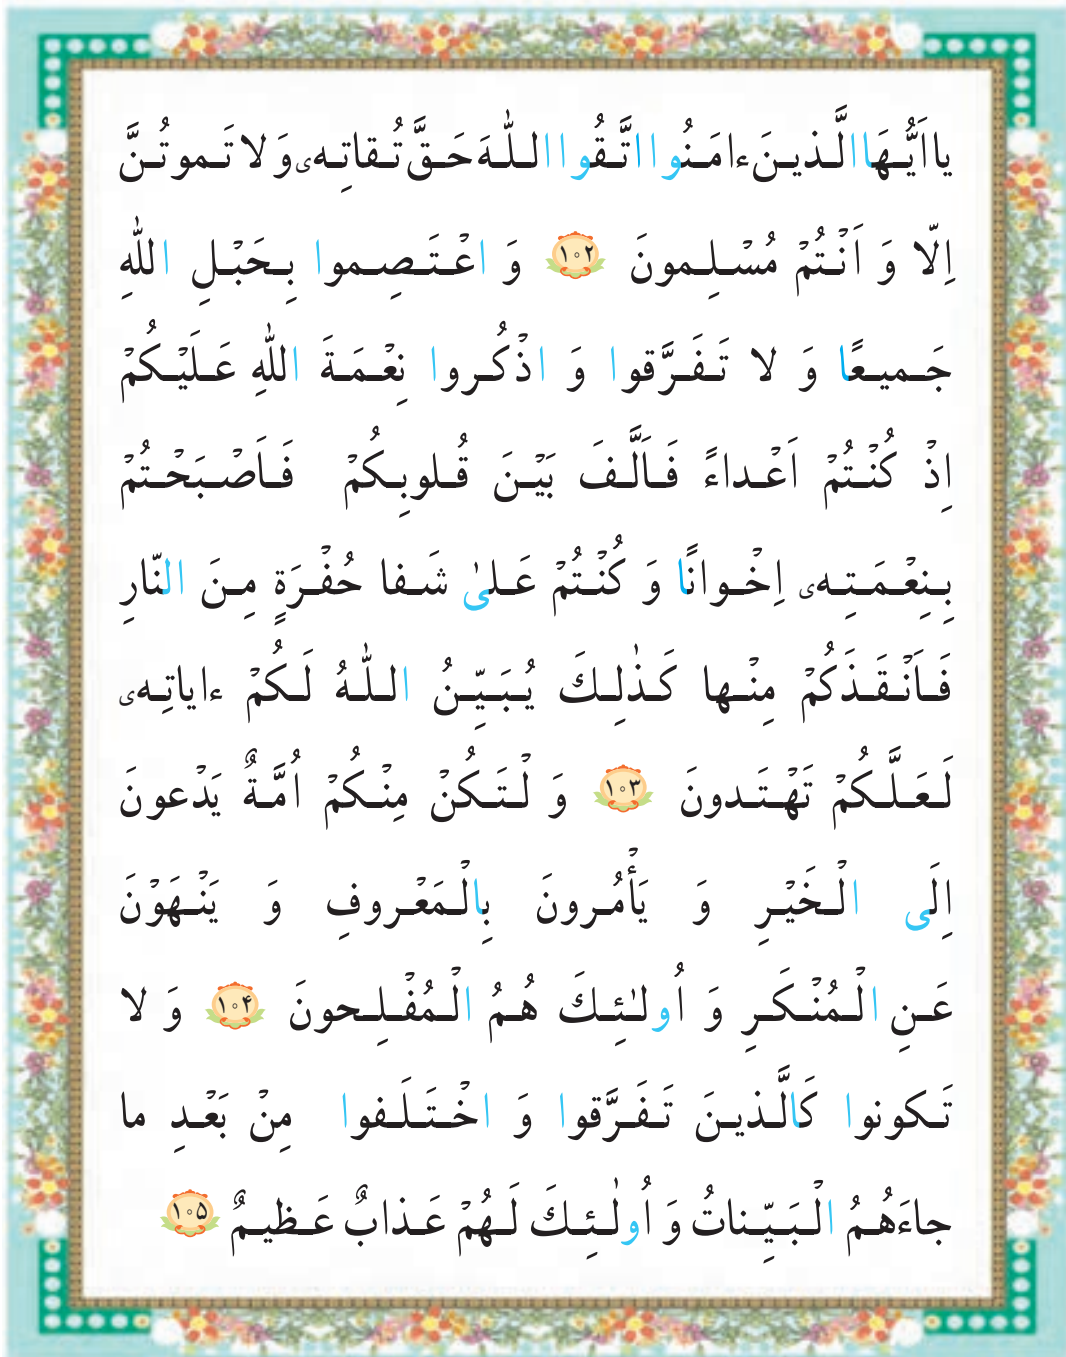 یااَیُّهَا الَّذینَ ءامَنُوا اتَّقُوا اللّٰهَ حَقَّ تُقاتِهٖ وَ لا تَموتُنَّ
اِلّا وَ اَنْتُمْ مُسْلِمونَ ﴿۱۰۲﴾ وَ اعْتَصِموا بِحَبْلِ اللّٰهِ
جَمیعًا وَ لا تَفَرَّقوا وَ اذْکُروا نِعْمَةَ اللّٰهِ عَلَیْکُمْ
اِذْ کُنْتُمْ اَعْداءً فَاَلَّفَ بَیْنَ قُلوبِکُمْ فَاَصْبَحْتُمْ
بِنِعْمَتِهٖ اِخْوانًا وَ کُنْتُمْ عَلیٰ شَفا حُفْرَةٍ مِنَ النّارِ
فَاَنْقَذَکُمْ مِنْها کَذٰلِکَ یُبَیِّنُ اللّٰهُ لَکُمْ ءایاتِهٖ
لَعَلَّکُمْ تَهْتَدونَ ﴿۱۰۳﴾ وَ لْتَکُنْ مِنْکُمْ اُمَّةٌ یَدْعونَ
اِلَی الْخَیْرِ وَ یَأْمُرونَ بِالْمَعْروفِ وَ یَنْهَوْنَ
عَنِ الْمُنْکَرِ وَ اُولٰئِکَ هُمُ الْمُفْلِحونَ ﴿۱۰۴﴾ وَ لا
تَکونوا کَالَّذینَ تَفَرَّقوا وَ اخْتَلَفوا مِنْ بَعْدِ ما
جاءَهُمُ الْبَیِّناتُ وَ اُولٰئِکَ لَهُمْ عَذابٌ عَظیمٌ ﴿۱۰۵﴾